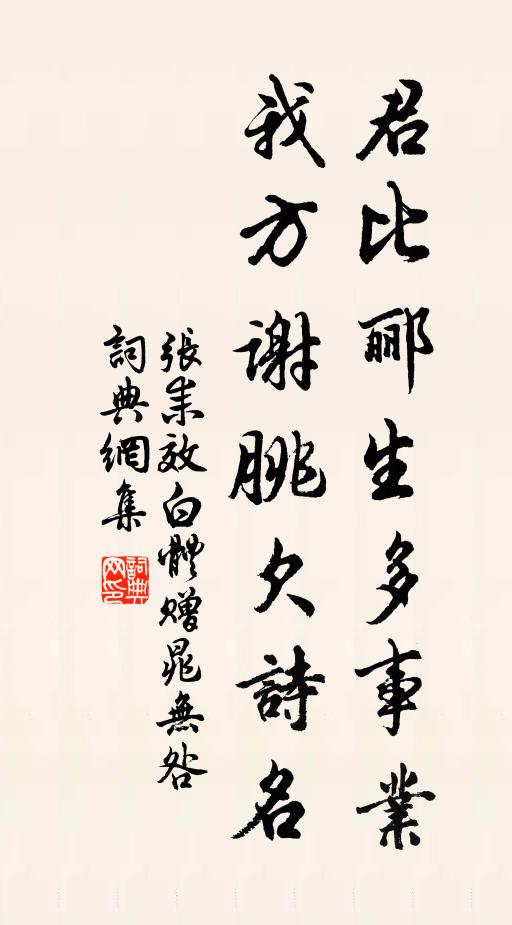 君比酈生多事業
我方謝朓欠詩名
張耒效白體贈晁無咎
詞典網集
詞典網印